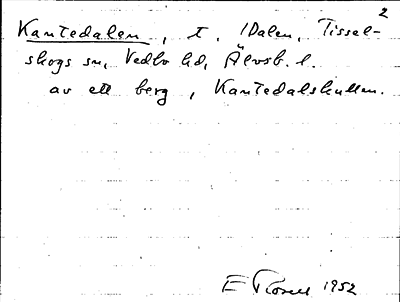 2
Kantedalen, t. Dalen, Tissel-
skogs sn, Vedbo hd, Älvsb. l.
av ett berg, Kantedalskullen.
E 1952